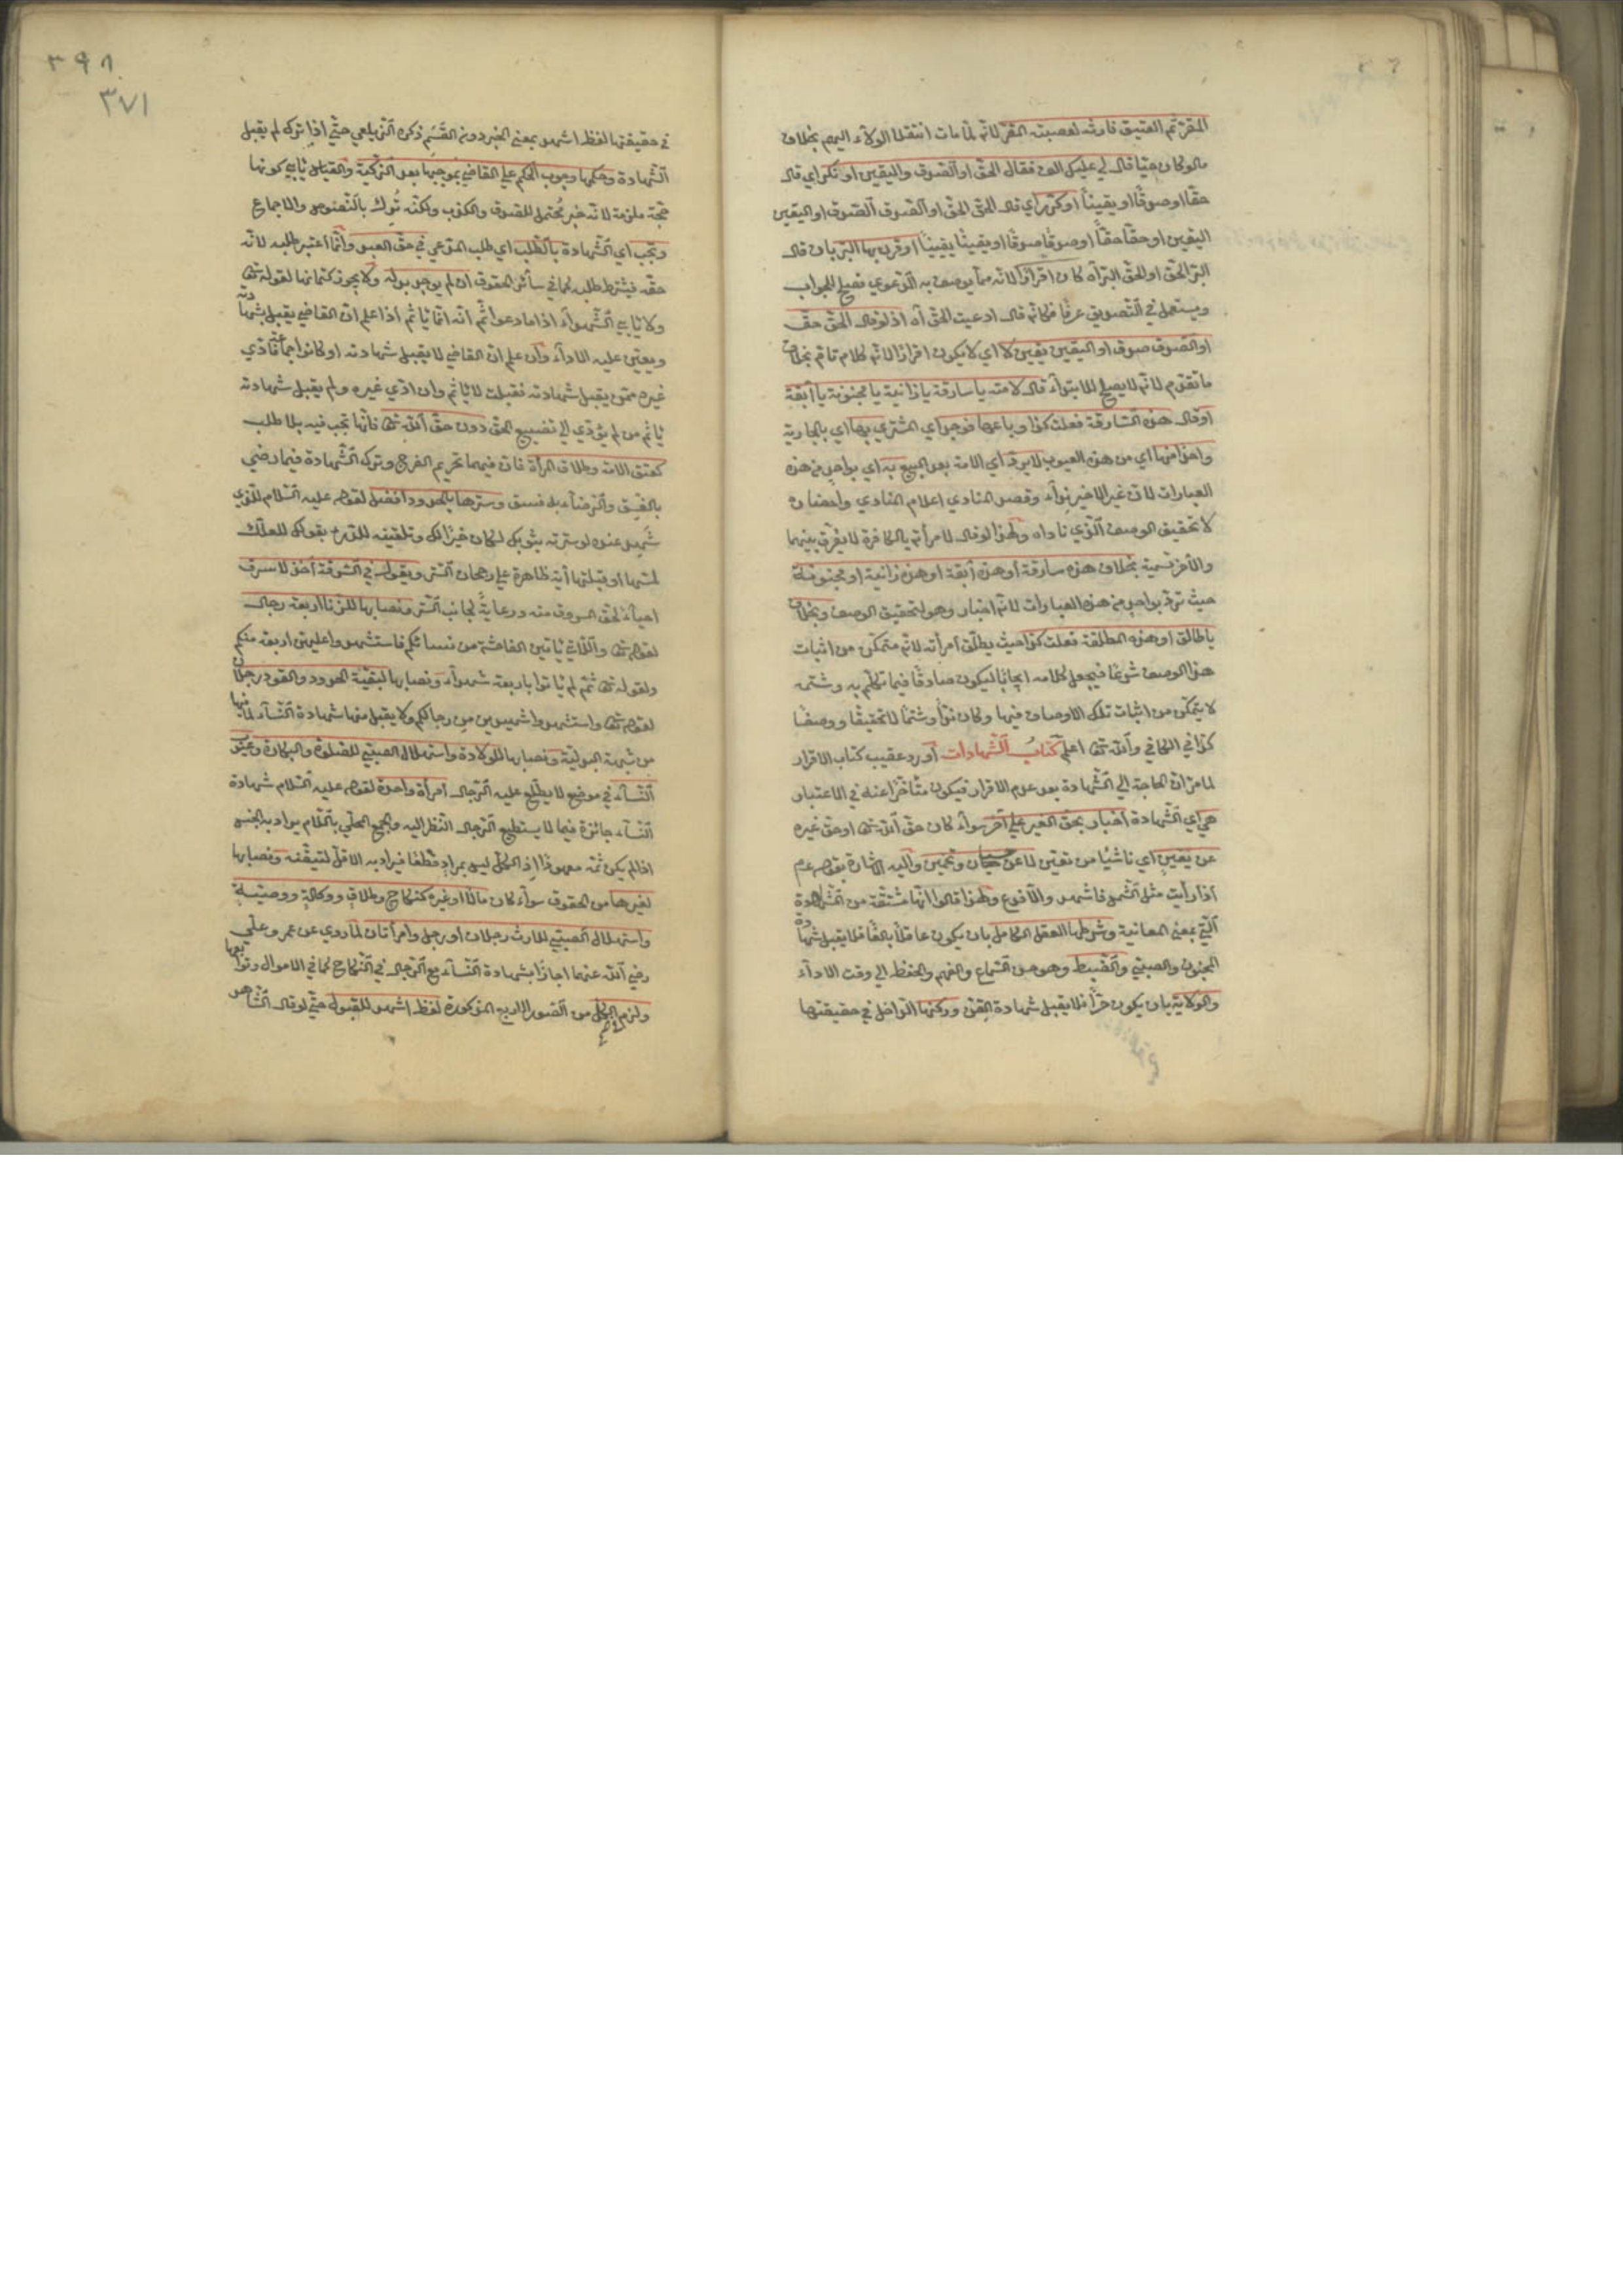 المقر ثم العتيق فارثه لعصبته المقر لانه لما مات انتقل الولاء اليهم بخلاف
مالو كان حيا قال لي عليك الف فقال الحق او الصدق واليقين او نكر اي قال
حقا او صدقا او يقينا او كرر اي قال الحق الحق او الصدق الصدق او اليقين
اليقين او حقا حقا او صدقا صدقا او يقينا يقينا او قرن بها البر بان قال
البر الحق او الحق البر آه كان اقرارا لانه مما يوصف به الدعوي فصلح للجواب
ويستعمل في التصديق عرفا فكانه قال ادعيت الحق آه اذ لو قال الحق حق
او الصدق صدق او اليقين يقين لا اي لا يكون اقرارا لانه كلام تام بخلاف
ما تقدم لانه لا يصلح للابتداء قال لامته يا سارقة يا زانية يا مجنونة يا آبقة
او قال هذه السارقة فعلت كذا وباعها فوجد اي المشتري بها اي بالجارية
واحدا منها اي من هذه العيوب لا يرد اي الامة بعد البيع به اي بواحد من هذه
العبارات لان غير الاخير نداء وقصد المنادي اعلام المنادي واحضاره
لا تحقيق الوصف الذي ناداه ولهذا لو قال لامرأته يا كافرة لا يفرق بينهما
والآخر شتمية بخلاف هذه سارقة او هذه آبقة او هذه زانية او مجنونة
حيث ترد بواحد من هذه العبارات لانه اخبار وهو لتحقيق الوصف وبخلاف
يا طالق او هذه المطلقة فعلت كذا حيث يطلق امرأته لانه متمكن من اثبات
هذا الوصف شرعا فيجعل كلامه ايجابا ليكون صادقا فيما تكلم به وشتمه
لا يتمكن من اثبات تلك الاوصاف فيها وكان نداء وشتما لا تحقيقا ووصفا
كذا في الكافي والله تعالى اعلم كتاب الشهادات أورد عقيب كتاب الاقرار
لما مر ان الحاجة الي الشهادة بعد عدم الاقرار فيكون متأخرا عنه في الاعتبار
هي اي الشهادة اخبار بحق الغير علي آخر سواء كان حق الله تعالى او حق غيره
عن يقين اي ناشئا من تعين لا عن حسبان وتخمين واليه الاشارة بقوله عم
اذا رأيت مثل الشمس فاشهد والا فدع ولهذا قالوا انها مشتقة من المشاهدة
التي بمعني المعاينة وشرطها العقل الكامل بان يكون عاقلا بالغا فلا يقبل شهادة
المجنون والصبي والضبط وهو حسن السماع والفهم والحفظ الي وقت الاداء
والولاية بان يكون حرا فلا يقبل شهادة القن وركنها الداخل في حقيقتها
٣٩٨
٣٧١
في حقيقتها لفظ اشهد بمعني الخبر دون القسم ذكره الزيلعي حتي اذا تركه لم يقبل
الشهادة وحكمها وجوب الحكم علي القاضي بموجبها بعد التزكية والقياس يابي كونها
حجة ملزمة لانه خبر محتمل للصدق والكذب ولكنه ترك بالنصوص والاجماع
وتجب اي الشهادة بالطلب اي طلب المدعي في حق العبد وانما اعتبر طلبه لانه
حقه فيشترط طلبه كما في سائر الحقوق ان لم يوجد بدله ولا يجوز كتمانها لقوله تعالى
ولا ياب الشهداء اذا ما دعوا ثم انه انما ياثم اذا علم ان القاضي يقبل شهادته
ويعين عليه الاداء وان علم ان القاضي لا يقبل شهادته او كانوا جماعة فادي
غيره ممن يقبل شهادته فقبلت لا ياثم وان ادي غيره ولم يقبل شهادته
ياثم من لم يؤدي الي تضييع الحق دون حق الله تعالى فانها تجب فيه بلا طلب
كعتق الامة وطلاق المرأة فان فيهما تحريم الفرج وترك الشهادة فيما رضي
بالفسق والرضاء به فسق وسترها بالحدود افضل لقوله عليه السلام للذي
شهد عنده لو سترته بثوبك لكان خيرا لك وتلقينه للدرء بقولك لعلك
لمستها او قبلتها آية ظاهرة علي رجحان الستر ويقول في السرقة اخذ لا سرق
احياء لحق المسروق منه ورعاية لجانب الستر ونصابها للزنا اربعة رجال
لقوله تعالى واللاتي ياتين الفاحشة من نسائكم فاستشهدوا عليهن اربعة منكم
ولقوله تعالى ثم لم ياتوا باربعة شهداء ونصابها لبقية الحدود والقود رجلان
لقوله تعالى واستشهدوا شهيدين من رجالكم ولا يقبل منها شهادة النساء لما فيها
من شبهة البدلية ونصابها للولادة واستهلال الصبي للصلوة والبكارة وعيوب
النساء في موضع لا يطلع عليه الرجال امرأة واحدة لقوله عليه السلام شهادة
النساء جائزة فيما لا يستطيع الرجال النظر اليه والجمع المحلي باللام يراد به الجنس
اذا لم يكن ثمه معهود اذ الكل ليس بمراد قطعا فيراد به الاقل لتيقنه ونصابها
لغيرها من الحقوق سواء كان مالا او غيره كنكاح وطلاق ووكالة ووصية
واستهلال الصبي للارث رجلان او رجل وامرأتان لما روي عن عمر وعلي
رضي الله عنهما اجازا بشهادة النساء مع الرجال في النكاح كما في الاموال وتوابعها
ولزم الكل من الصور الاربع المذكورة لفظ اشهد للقبول حتي لو قال الشاهد